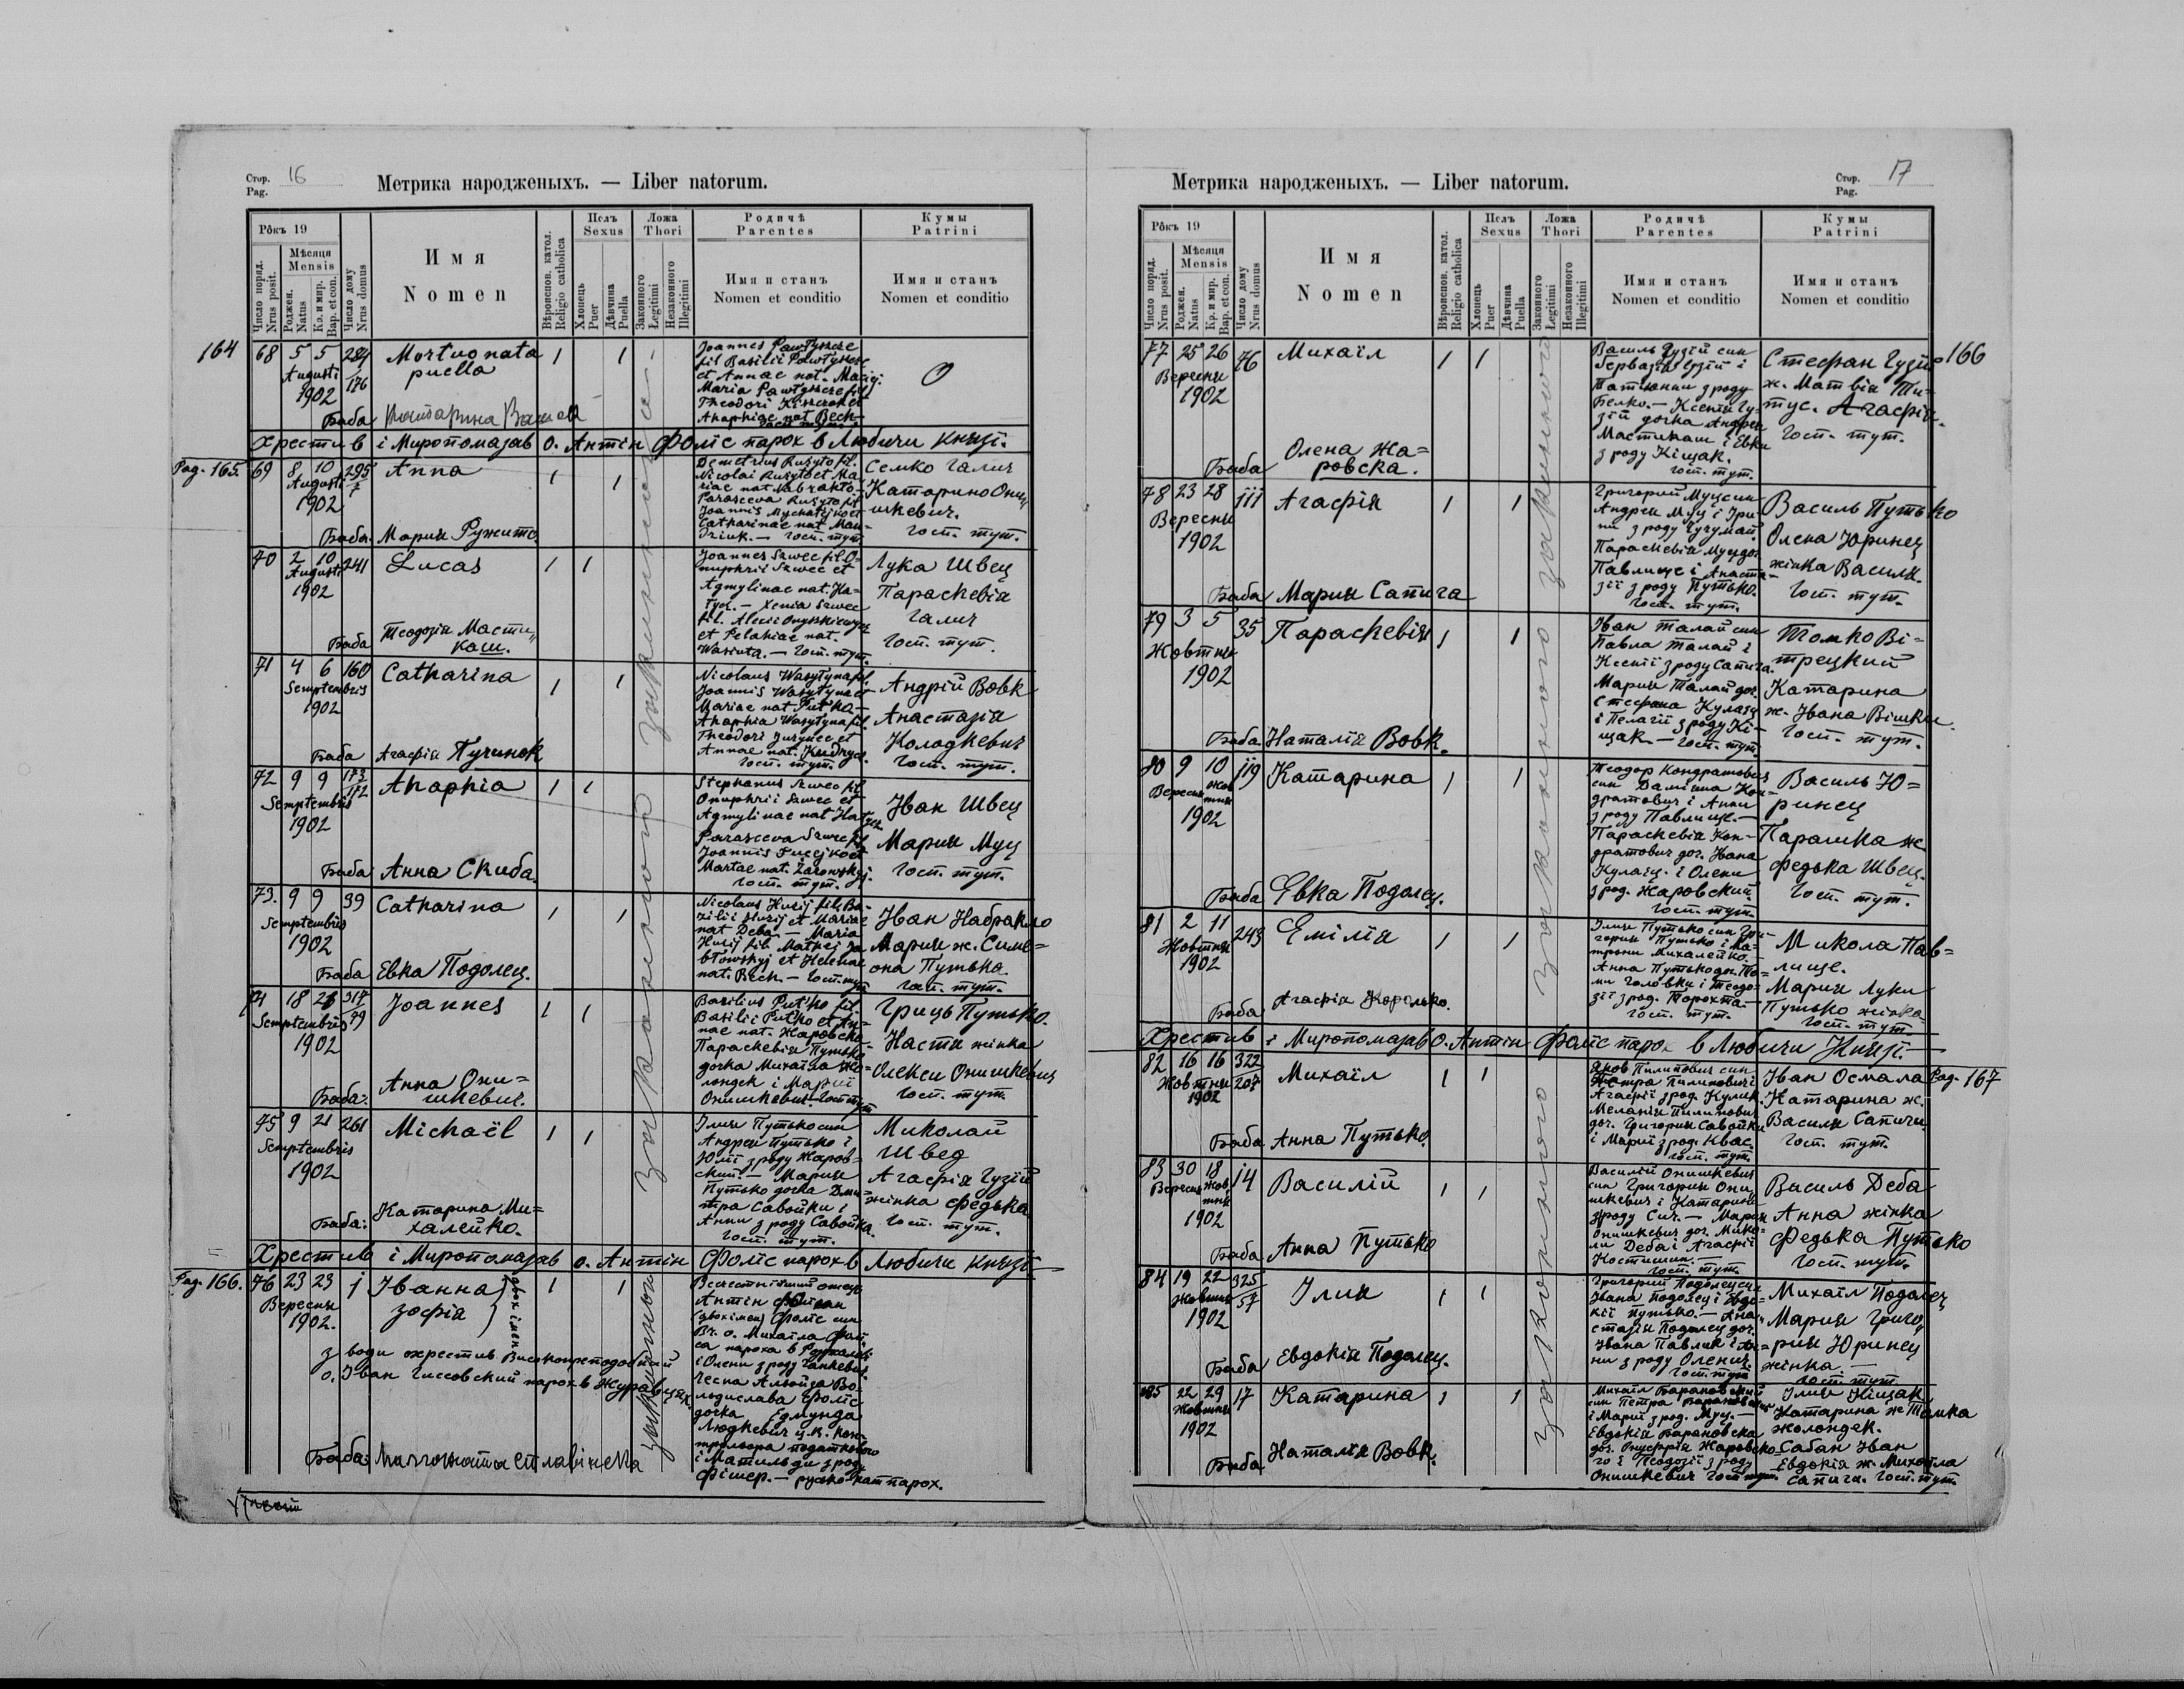 Стор. 16
Pag.
Метрика народженыхъ. — Liber natorum.
Рôкъ 19
Число поряд.
Nrus posit.
Мѣсяця
Mensis
Роджен.
Natus
Кр. и мир.
Bap. et con.
Число дому
Nrus domus
Имя
Nomen
Вѣроиспов. катол.
Religio catholica
Полъ
Sexus
Хлопець
Puer
Дѣвчина
Puella
Ложа
Thori
Законного
Legitimi
Незаконного
Illegitimi
Родичѣ
Parentes
Имя и станъ
Nomen et conditio
Кумы
Patrini
Имя и станъ
Nomen et conditio
164
68 5 5 284/176
Augusti
1902
Mortuo nata
puella
Баба Катарина
Joannes Pawłyszcze
fil Basilii Pawłyszcze
et Annae nat. Maciej.
Maria Pawłyszcze fil
Theodori Kiszczak et
Ahaphiae nat Bech
0
Хрестив і Миропомазав о. Антін Фоліс парох в Любичи Князі.
Pag. 165.
69 8 10 295/7
Augusti
1902
Anna
Баба. Мария Ружито.
Demetrius Rużyto fil.
Nicolai Rużyto et Ma-
riae nat Nabrakło-
Parasceva Rużyto fil
Joannis Mychalejko et
Catharinae nat Man-
dziuk. — Гост. тут
Семко Галич
Катарино Они-
шкевич.
Гост. тут.
70 2 10 241
Augusti
1902
Lucas
Баба Теодозія Масти-
каш.
Joannes Szwec fil O-
nuphrii Szwec et
Agmylinae nat. Ha-
łycz. — Xenia Szwec
fil. Alexii Onyszkiewycz
et Pelahiae nat.
Wasiuta. — Гост. тут.
Лука Швец
Параскевія
Галич
Гост. тут.
71 4 6 160
Semptembris
1902
Catharina
Баба Агафія Пучинок
Nicolaus Wasyłyna fil.
Joannis Wasyłyna et
Mariae nat Put'ko —
Ahaphia Wasyłyna fil
Theodori Jurynec et
Annae nat. Kudrycz.
Гост. тут.
Андрій Вовк
Анастазія
Колодкевич
Гост. тут.
72 9 9 173/172
Semptembris
1902
Ahaphia
Баба Анна Скиба.
Stephanus Szwec fil
Onuphrii Szwec et
Agmylinae nat Hałycz
Parasceva Szwec fil
Joannis et
Martae nat. Żarowskyj.
Гост. тут.
Іван Швец
Мария Муц
Гост. тут.
73. 9 9 39
Semptembris
1902
Catharina
Баба Евка Подолец.
Nicolaus Huzij fil. Ba-
zilii Huzij et Mariae
nat Deba. — Maria
Huzij fil. Mathei Ja
błowskyj et Helenae
nat. Bech. — Гост. тут
Іван Набракло
Мария ж. Симе-
она Путька.
Гост. тут.
74 18 21 317/99
Semptembris
1902
Joannes
Баба: Анна Они-
шкевич.
Basilius Put'ko fil.
Basilii Put'ko et An-
nae nat. Жаровска-
Параскевія Путько
дочка Михаіла Жо-
лондек і Мариї
Онишкевич. Гост тут
Гриць Путько.
Настя жінка
Олекси Онишкевич
Гост. тут.
75 9 21 261
Semptembris
1902
Michaël
Баба: Катарина Ми-
халейко.
Ілия Путько син
Андрея Путько і
Юлії з роду Жаров-
ский. — Мария
Путько дочка Дми-
тра Савойки і
Анни з роду Савойка.
Гост. тут.
Миколай
Швед
Агафія Гузій
жінка Федька
Гост. тут.
Хрестив і Миропомазав о. Антін Фоліс парох в Любичи Князі. —
Pag. 166.
76 23 23 1
Вересня
1902.
Іванна
Зофія
двох імен
з води охрестив Високопреподобний
о. Іван Чиссовский парох в Журавцях.
Баба:
Всечестнійший отець
Антін
(двох імен) Фоліс син
Вч. о. Михаіла Фолі
са пароха в
і Олени з роду Ганкевич
Чесна Алойза Во-
лодислава Фоліс
дочка Едмунда
Людкевич ц. к. кон-
трольора податкового
і Матильди з роду
Фішер. — руско кат парох.
законного
Стор. 17
Pag.
Метрика народженыхъ. — Liber natorum.
Рôкъ 19
Число поряд.
Nrus posit.
Мѣсяця
Mensis
Роджен.
Natus
Кр. и мир.
Bap. et con.
Число дому
Nrus domus
Имя
Nomen
Вѣроиспов. катол.
Religio catholica
Полъ
Sexus
Хлопець
Puer
Дѣвчина
Puella
Ложа
Thori
Законного
Legitimi
Незаконного
Illegitimi
Родичѣ
Parentes
Имя и станъ
Nomen et conditio
Кумы
Patrini
Имя и станъ
Nomen et conditio
77 25 26 76
Вересня
1902
Михаїл
Баба Олена Жа-
ровска.
Василь Гузій син
Гервазія Гузій і
Татіянни з роду
Белко. — Ксения Гу-
зій дочка Андрея
Мастикаш і Евки
з роду Кіщак.
Гост. тут.
Стефан Гузій
ж. Матвія Ти-
тус. Агафія.
Гост. тут.
166
78 23 28 111
Вересня
1902
Агафія
Баба Мария Сапига
Григорий Муц син
Андрея Муц і Іри-
ни з роду Чучман
Параскевія Муц доч.
Павлище і Анаста-
зії з роду Путько.
Гост. тут.
Василь Путько
Олена Юринец
жінка Василя.
Гост. тут.
79 3 5 35
Жовтня
1902
Параскевія
Баба Наталія Вовк.
Іван Талай син
Павла Талай і
Ксенії з роду Сапига.
Мария Талай доч.
Стефана Кулаец
і Пелагії з роду Кі-
щак — Гост. тут.
Томко Ві-
трецкий
Катарина
ж. Івана Вішки.
Гост. тут.
80 9 10 119
Вересня Жов
тня
1902
Катарина
Баба Евка Подолец.
Теодор Кондратович
син Даміяна Кон-
дратович і Анни
з роду Павлище. —
Параскевія Кон-
дратович доч. Івана
Кулаец. і Олени
з род. Жаровский.
Гост. тут.
Василь Ю-
ринец
Парашка ж.
Федька Швец.
Гост. тут.
81 2 11 243
Жовтня
1902
Емілія
Баба Агафія Королько.
Ілия Путько син Гри-
гория Путько і Ма-
трони Михалейко. —
Анна Путько доч. То-
ми Головки і Теодо-
зії з род. Торохта. —
Гост. тут.
Микола Пав-
лище.
Мария Луки
Путько жінка
Гост. тут
Хрестив і Миропомазав о. Антін Фоліс парох в Любичи Князі. —
82 16 16 322/207
Жовтня
1902
Михаїл
Баба Анна Путько.
Яков Пилипович син
Петра Пилипович і
Агафії з род. Кулик.
Меланія Пилипович
доч. Григория Савойки
і Мариї з род. Квас.
Гост. тут.
Іван Осмала
Катарина ж.
Василя Сапиги.
Гост. тут.
Pag. 167
83 30 18 14
Вересня Жов
тня
1902
Василій
Баба Анна Путько
Василій Онишкевич
син Григория Они
шкевич і Катарини
з роду Сич. — Мария
Онишкевич доч. Мико-
ли Деба і Агафії
Костишин.
Гост. тут.
Василь Деба
Анна жінка
Федька Путько
Гост. тут.
84 19 22 325/57
Жовтня
1902
Ілия
Баба Евдокія Подолец.
Григорий Подолец син
Івана Подолец і Евдо-
кії Путько. — Ана-
стазія Подолец доч.
Івана Павлик і Ан-
ни з роду Олених.
Гост. тут
Михаїл Подолец
Мария Григо-
рия Юринец
жінка —
Гост. тут
85 22 29 17
Жовтня
1902
Катарина
Баба Наталія Вовк.
Михаїл Барановский
син Петра Барановский
і Мариї з род. Муц. —
Евдокія Барановска
доч. Онуфрія Жаровско-
го і Теодозії з роду
Онишкевич Гост тут.
Ілия Кіщак
Катарина ж Томка
Жолондек.
Сабан Іван
Евдокія ж. Михаіла
Сапига. Гост. тут.
законного